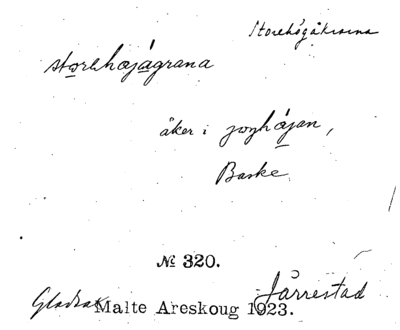 Storehögåkrarna
storehøjågrana
åker i
Baske
№ 320.
Gladsax Malte Areskoug 1923. Järrestad